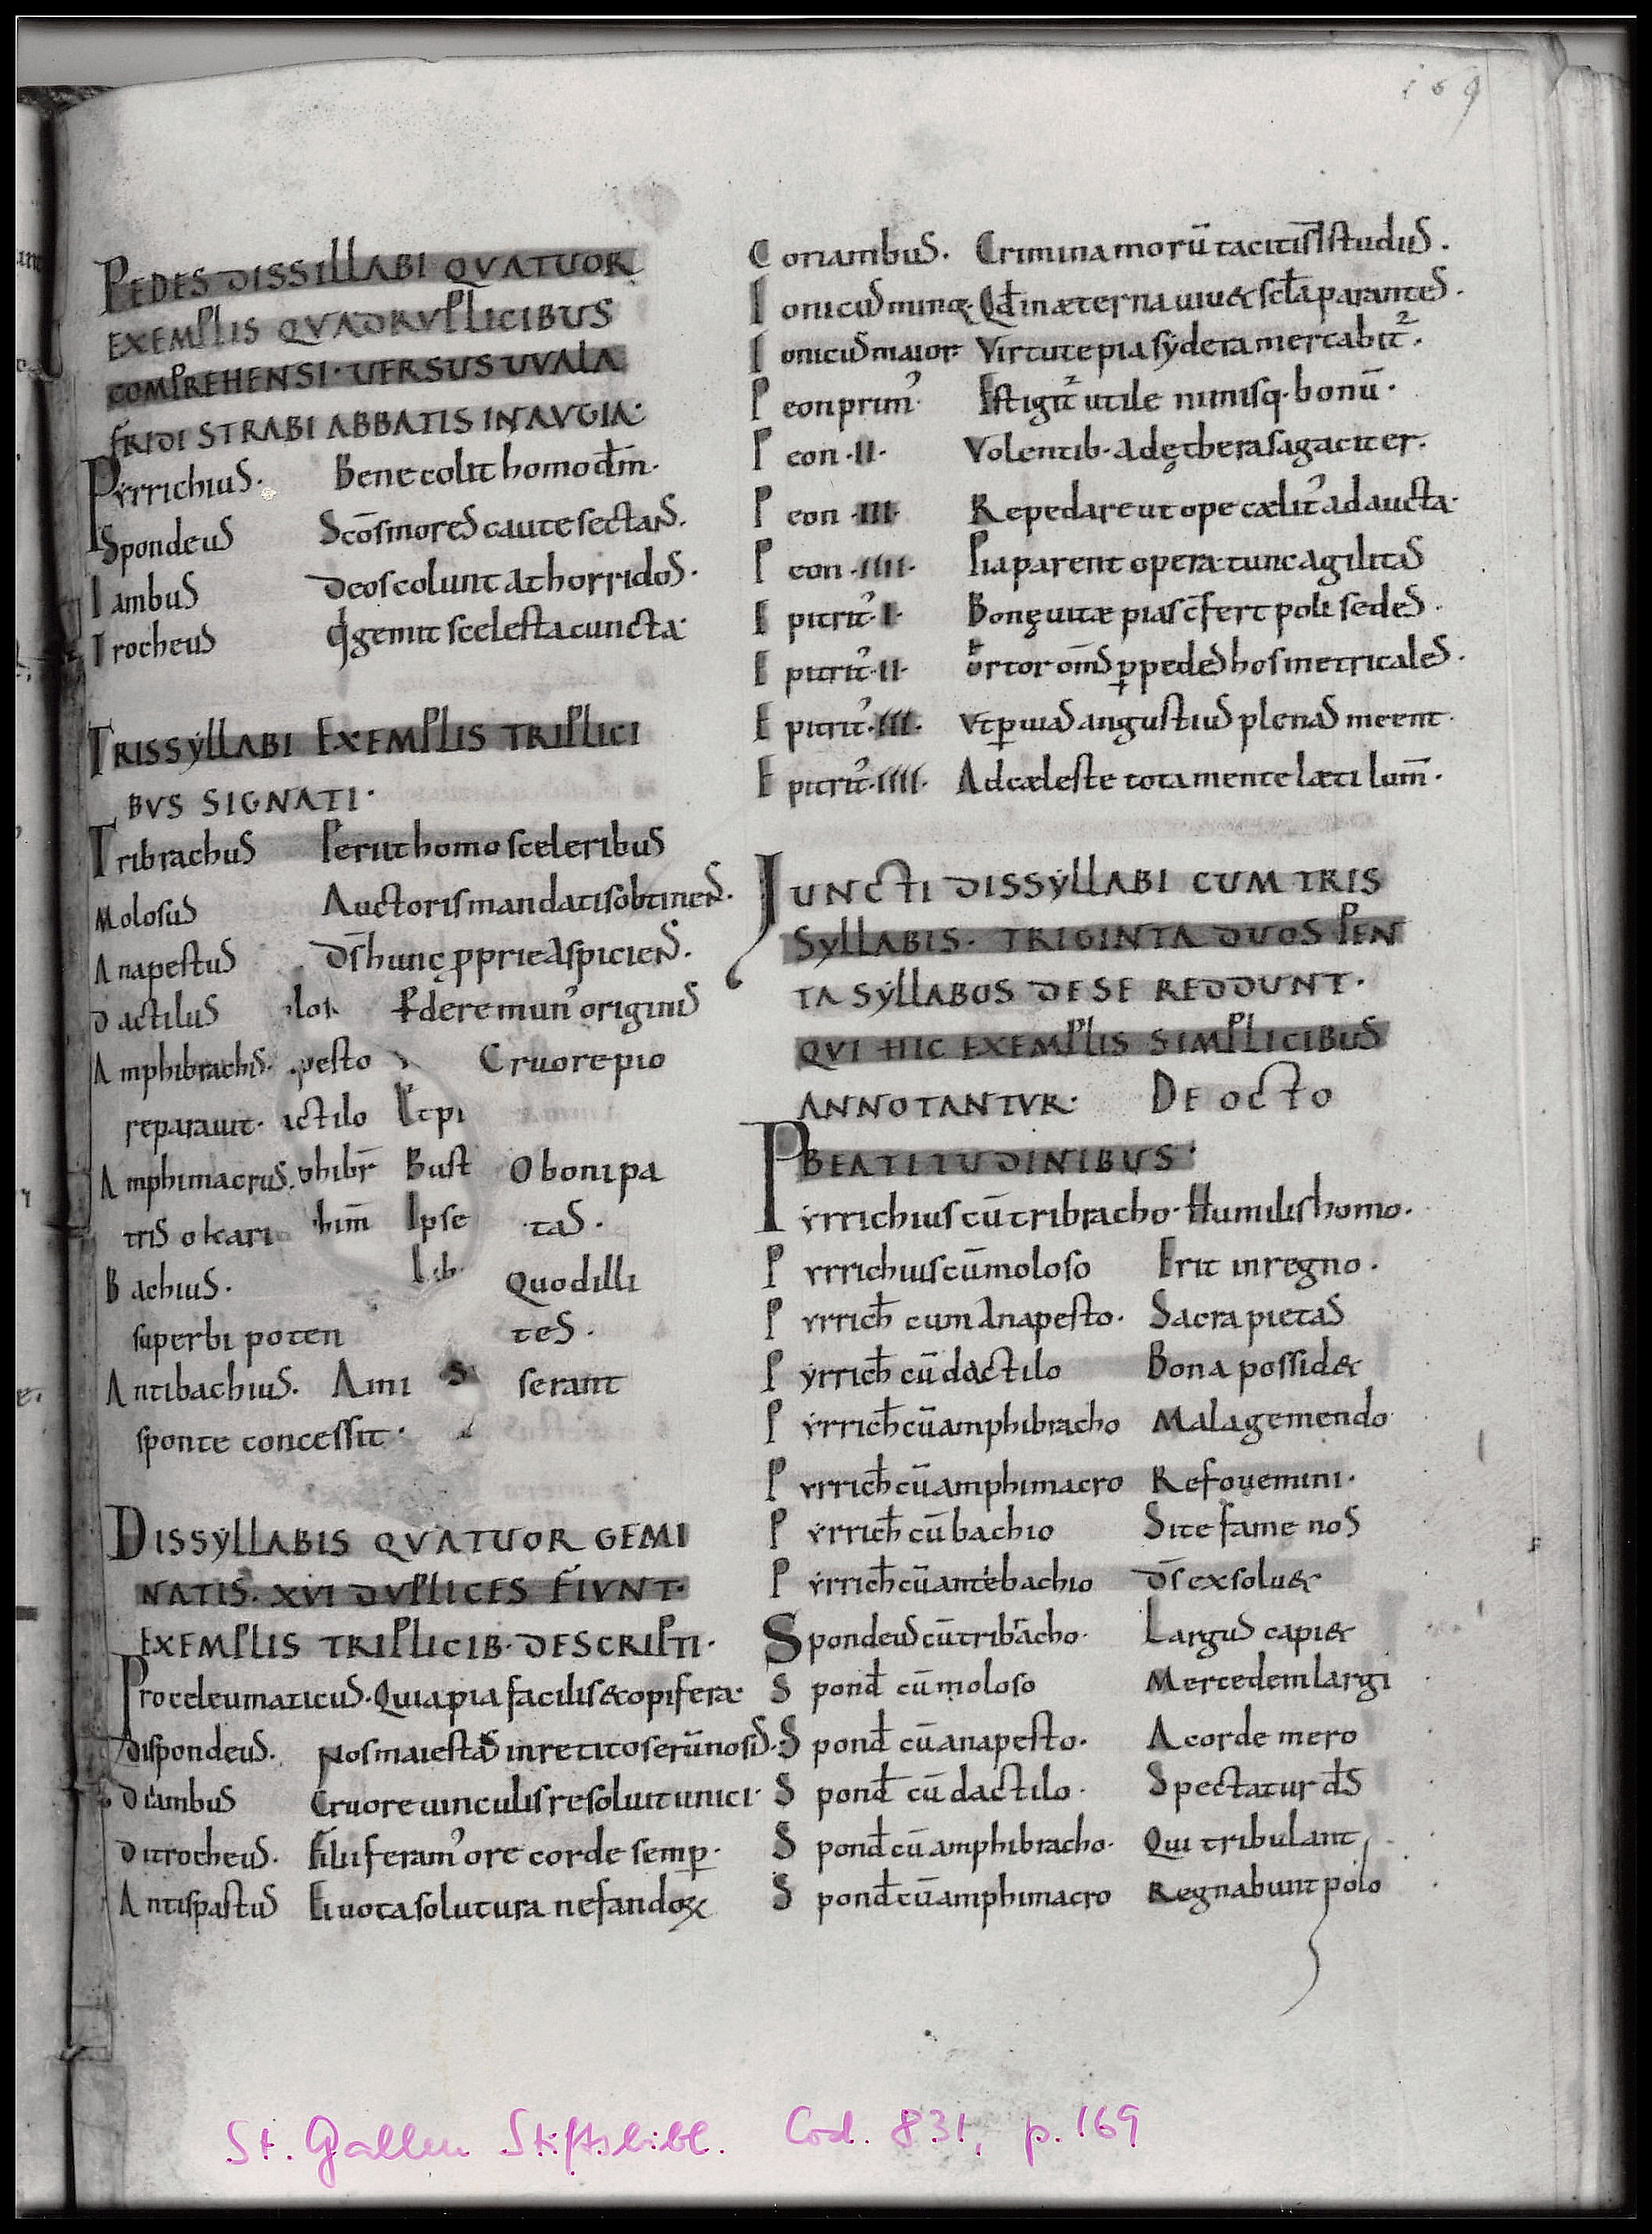 169
PEDES DISSILLABI QVATUOR
EXEMPLIS QVADRVPLICIBUS
COMPREHENSI · UERSUS UVALA
FRIDI STRABI ABBATIS IN AVGIA·
Pyrrichius. Bene colit homo dm̄.
Spondeus Scōs mores caute sectans.
Iambus Deos colunt at horridos.
Trocheus gemit scelesta cuncta·
TRISSYLLABI EXEMPLIS TRIPLICI
BVS SIGNATI·
Tribrachus Periit homo sceleribus
Molosus Auctoris mandatis obtinens.
Anapestus Ds̄ hunc proprie aspiciens.
Dactilus Pdere mun' originis
Amphibrachis. pesto Cruore pio
reparauit· actilo Et pi
Amphimacrus. phibr̄ Bust O boni pa
tris o kari him̄ Ipse tas.
Bachius. Quod illi
superbi poten tes.
Antibachius. Ami serant
sponte concessit·
DISSYLLABIS QVATUOR GEMI
NATIS. XVI DVPLICES FIVNT·
EXEMPLIS TRIPLICIB· DESCRIPTI·
Proceleumaticus. Quia pia facilis & opifera·
Dispondeus. Nos maiestas
Diiambus Cruore uinculis resoluit unici·
Ditrocheus. feram' ore corde semp̲·
Antispastus Ei uota solutura nefandoꝝ
Coriambus. Crimina morū tacitis studiis.
Ionicus minor Qd̄ in æterna uiu& parantes.
Ionicus maior Virtute pia sydera mercabit².
Peon prim' Est igit² utile nimisq· bonū·
Peon ·II· Volentib· ad ęthera sagaciter.
Peon ·III· Repedare ut ope cælit' ad aucta·
Peon ·IIII· Pia parent opera tunc agilitas
Epitrit'·I· Bonę uitæ pias c̄fert poli sedes.
Epitrit'·II· Ortor om̄s p̲ pedes hos metricales.
Epitrit'·III· Vt p̲ uias angustius plenas meent·
Epitrit'·IIII· Ad cæleste tota mente læti lum̄·
JUNCTI DISSYLLABI CUM TRIS
SYLLABIS. TRIGINTA DUOS PEN
TA SYLLABOS DE SE REDDUNT.
QVI HIC EXEMPLIS SIMPLICIBUS
ANNOTANTVR· DE OCTO
BEATITUDINIBUS·
Pyrrichius cū tribracho· Humilis homo.
Pyrrichius cū moloso Erit in regno.
Pyrrich̄ cum anapesto· Sacra pietas
Pyrrich̄ cū dactilo Bona possid&
Pyrrich̄ cū amphibracho Mala gemendo
Pyrrich̄ cū amphimacro Refouemini·
Pyrrich̄ cū bachio Site fame nos
Pyrrich̄ cū antebachio Ds̄ exsolu&
Spondeus cū tribracho· Largus capi&
Spond̄ cū moloso Mercedem largi
Spond̄ cū anapesto· A corde mero
Spond̄ cū dactilo· Spectatur ds̄
Spond̄ cū amphibracho· Qui tribulant
Spond̄ cū amphimacro Regnabunt polo
St. Gallen Stiftsbibl. Cod. 831, p. 169